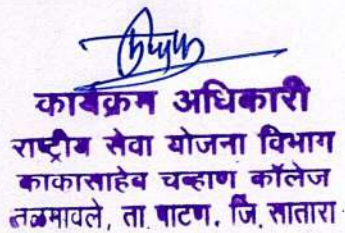 कार्यक्रम अधिकारी
राष्ट्रीय सेवा योजना विभाग
काकासाहेब चव्हाण कॉलेज
तळमावले, ता. पाटण, जि. सातारा